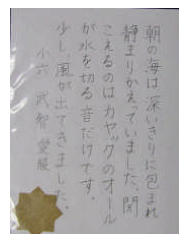 朝の海は深いきりに包まれ
静まりかえっていました。聞
こえるのはカヤックのオール
が水を切る音だけです。
少し風が出てきました。
小六 武智 愛